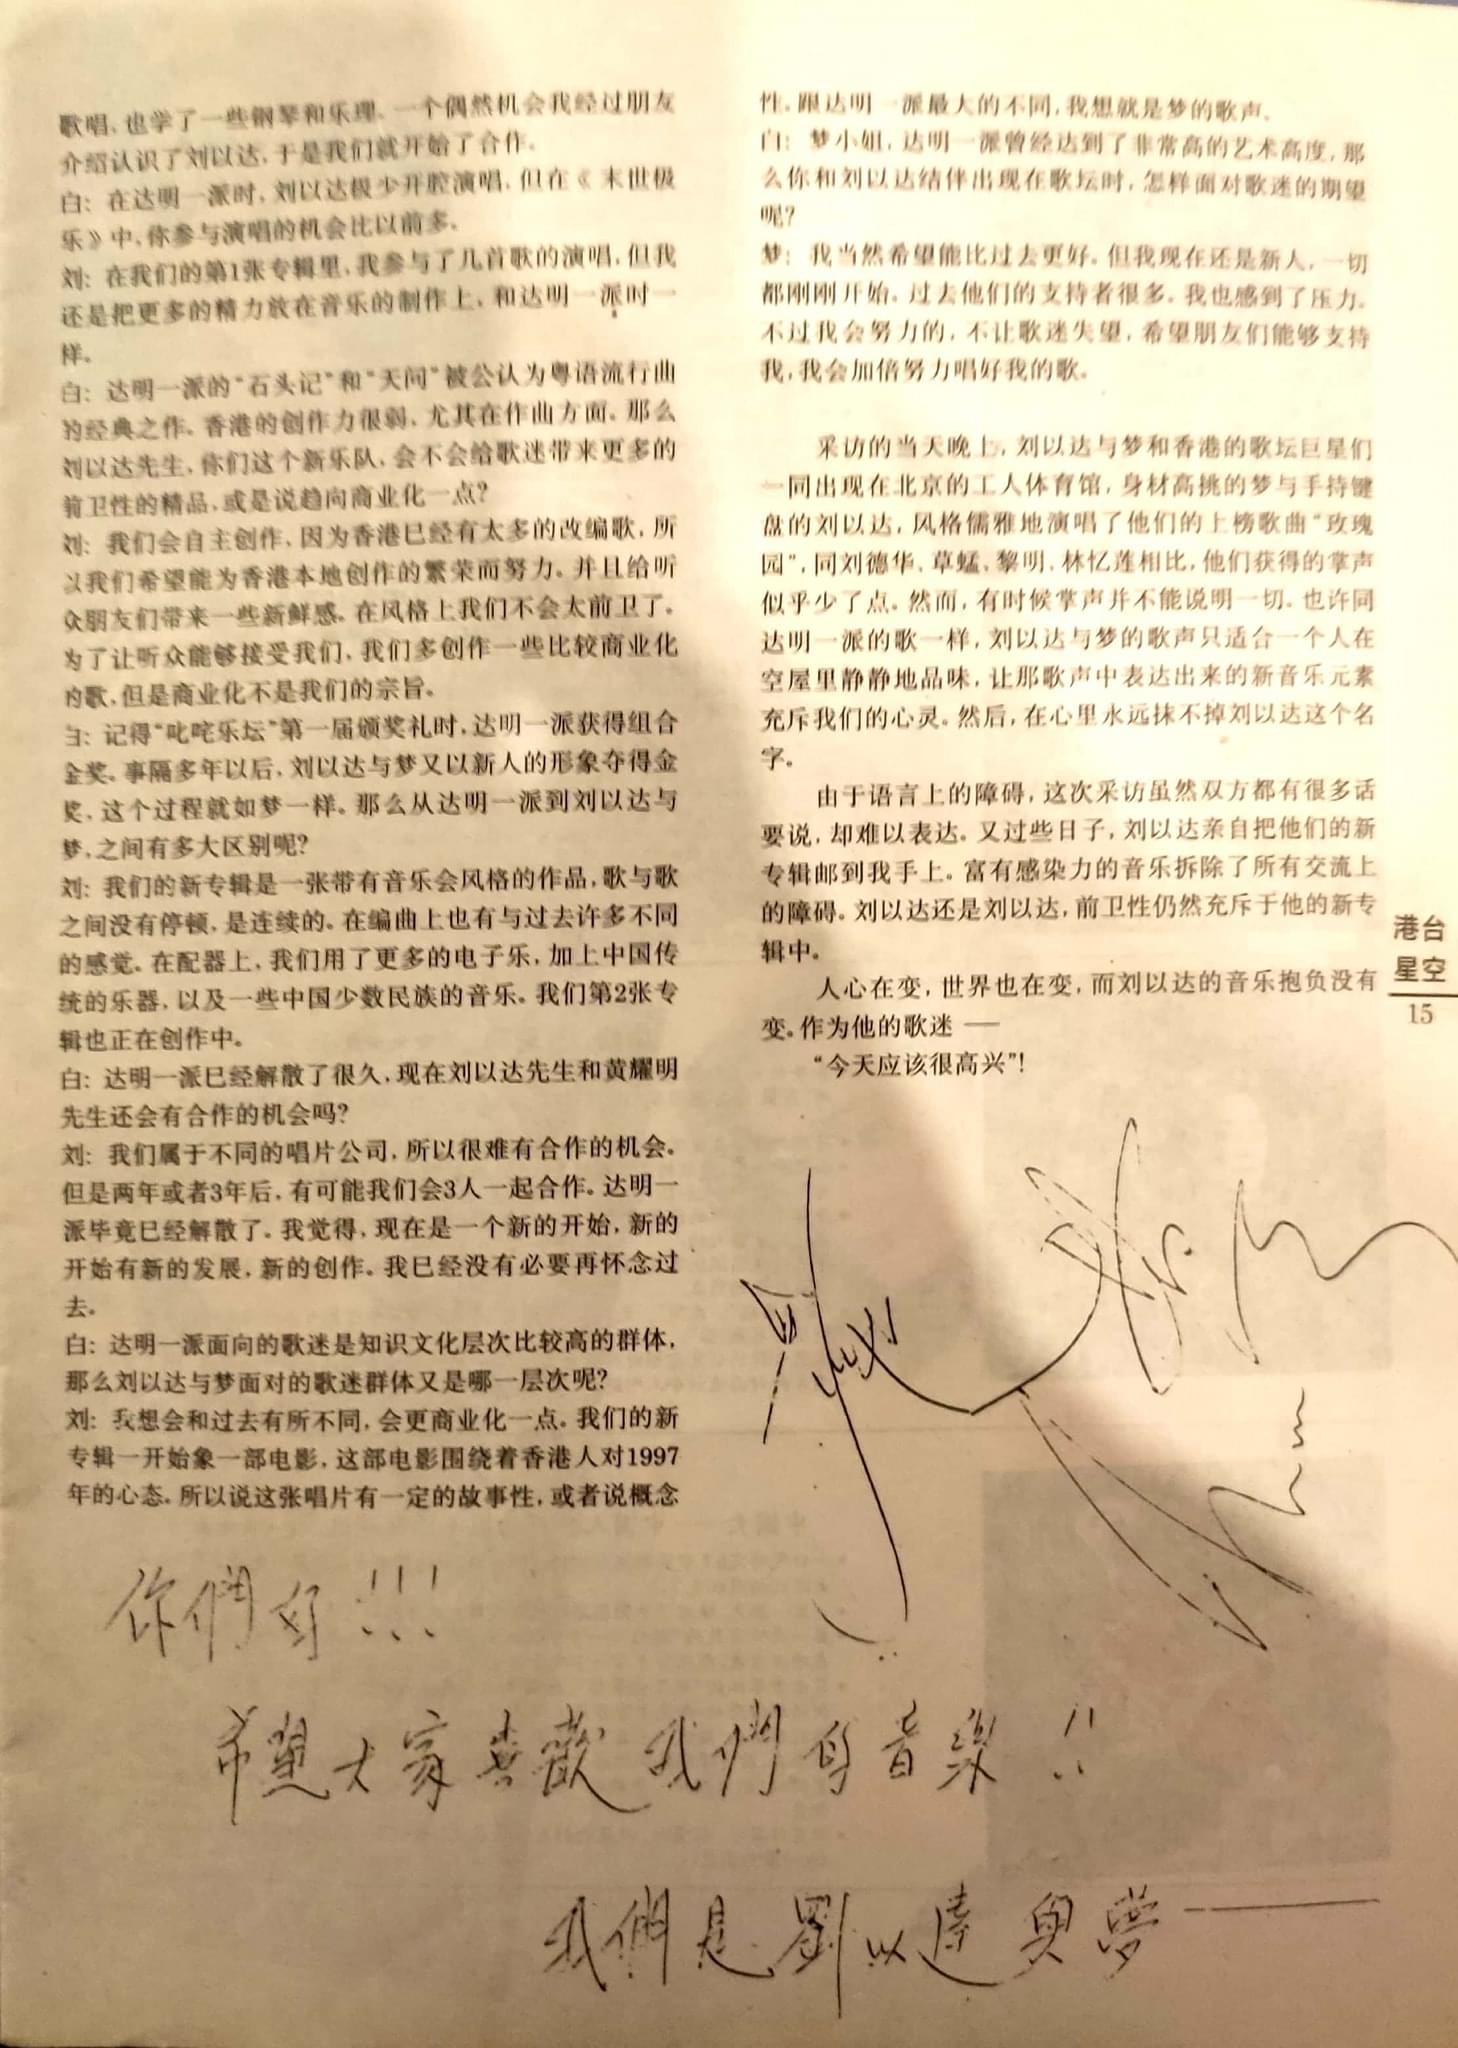 歌唱，也学了一些钢琴和乐理。一个偶然机会我经过朋友
介绍认识了刘以达，于是我们就开始了合作。
白：在达明一派时，刘以达极少开腔演唱，但在《末世极
乐》中，你参与演唱的机会比以前多。
刘：在我们的第1张专辑里，我参与了几首歌的演唱，但我
还是把更多的精力放在音乐的制作上，和达明一派时一
样。
白：达明一派的“石头记”和“天问”被公认为粤语流行曲
的经典之作。香港的创作力很弱，尤其在作曲方面。那么
刘以达先生，你们这个新乐队，会不会给歌迷带来更多的
前卫性的精品，或是说趋向商业化一点？
刘：我们会自主创作，因为香港已经有太多的改编歌，所
以我们希望能为香港本地创作的繁荣而努力。并且给听
众朋友们带来一些新鲜感。在风格上我们不会太前卫了。
为了让听众能够接受我们，我们多创作一些比较商业化
的歌，但是商业化不是我们的宗旨。
白：记得“叱咤乐坛”第一届颁奖礼时，达明一派获得组合
金奖。事隔多年以后，刘以达与梦又以新人的形象夺得金
奖，这个过程就如梦一样。那么从达明一派到刘以达与
梦，之间有多大区别呢？
刘：我们的新专辑是一张带有音乐会风格的作品，歌与歌
之间没有停顿，是连续的。在编曲上也有与过去许多不同
的感觉。在配器上，我们用了更多的电子乐，加上中国传
统的乐器，以及一些中国少数民族的音乐。我们第2张专
辑也正在创作中。
白：达明一派已经解散了很久，现在刘以达先生和黄耀明
先生还会有合作的机会吗？
刘：我们属于不同的唱片公司，所以很难有合作的机会。
但是两年或者3年后，有可能我们会3人一起合作。达明一
派毕竟已经解散了。我觉得，现在是一个新的开始，新的
开始有新的发展，新的创作。我已经没有必要再怀念过
去。
白：达明一派面向的歌迷是知识文化层次比较高的群体，
那么刘以达与梦面对的歌迷群体又是哪一层次呢？
刘：我想会和过去有所不同，会更商业化一点。我们的新
专辑一开始象一部电影，这部电影围绕着香港人对1997
年的心态。所以说这张唱片有一定的故事性，或者说概念
性。跟达明一派最大的不同，我想就是梦的歌声。
白：梦小姐，达明一派曾经达到了非常高的艺术高度，那
么你和刘以达结伴出现在歌坛时，怎样面对歌迷的期望
呢？
梦：我当然希望能比过去更好。但我现在还是新人，一切
都刚刚开始。过去他们的支持者很多。我也感到了压力。
不过我会努力的，不让歌迷失望，希望朋友们能够支持
我，我会加倍努力唱好我的歌。
采访的当天晚上，刘以达与梦和香港的歌坛巨星们
一同出现在北京的工人体育馆，身材高挑的梦与手持键
盘的刘以达，风格儒雅地演唱了他们的上榜歌曲“玫瑰
园”，同刘德华、草蜢、黎明、林忆莲相比，他们获得的掌声
似乎少了点。然而，有时候掌声并不能说明一切。也许同
达明一派的歌一样，刘以达与梦的歌声只适合一个人在
空屋里静静地品味，让那歌声中表达出来的新音乐元素
充斥我们的心灵。然后，在心里永远抹不掉刘以达这个名
字。
由于语言上的障碍，这次采访虽然双方都有很多话
要说，却难以表达。又过些日子，刘以达亲自把他们的新
专辑邮到我手上。富有感染力的音乐拆除了所有交流上
的障碍。刘以达还是刘以达，前卫性仍然充斥于他的新专
辑中。
人心在变，世界也在变，而刘以达的音乐抱负没有
变。作为他的歌迷 ——
“今天应该很高兴”！
港台
星空
15
你們好!!!
希望大家喜歡我們的音樂!!
我們是劉以達與夢——